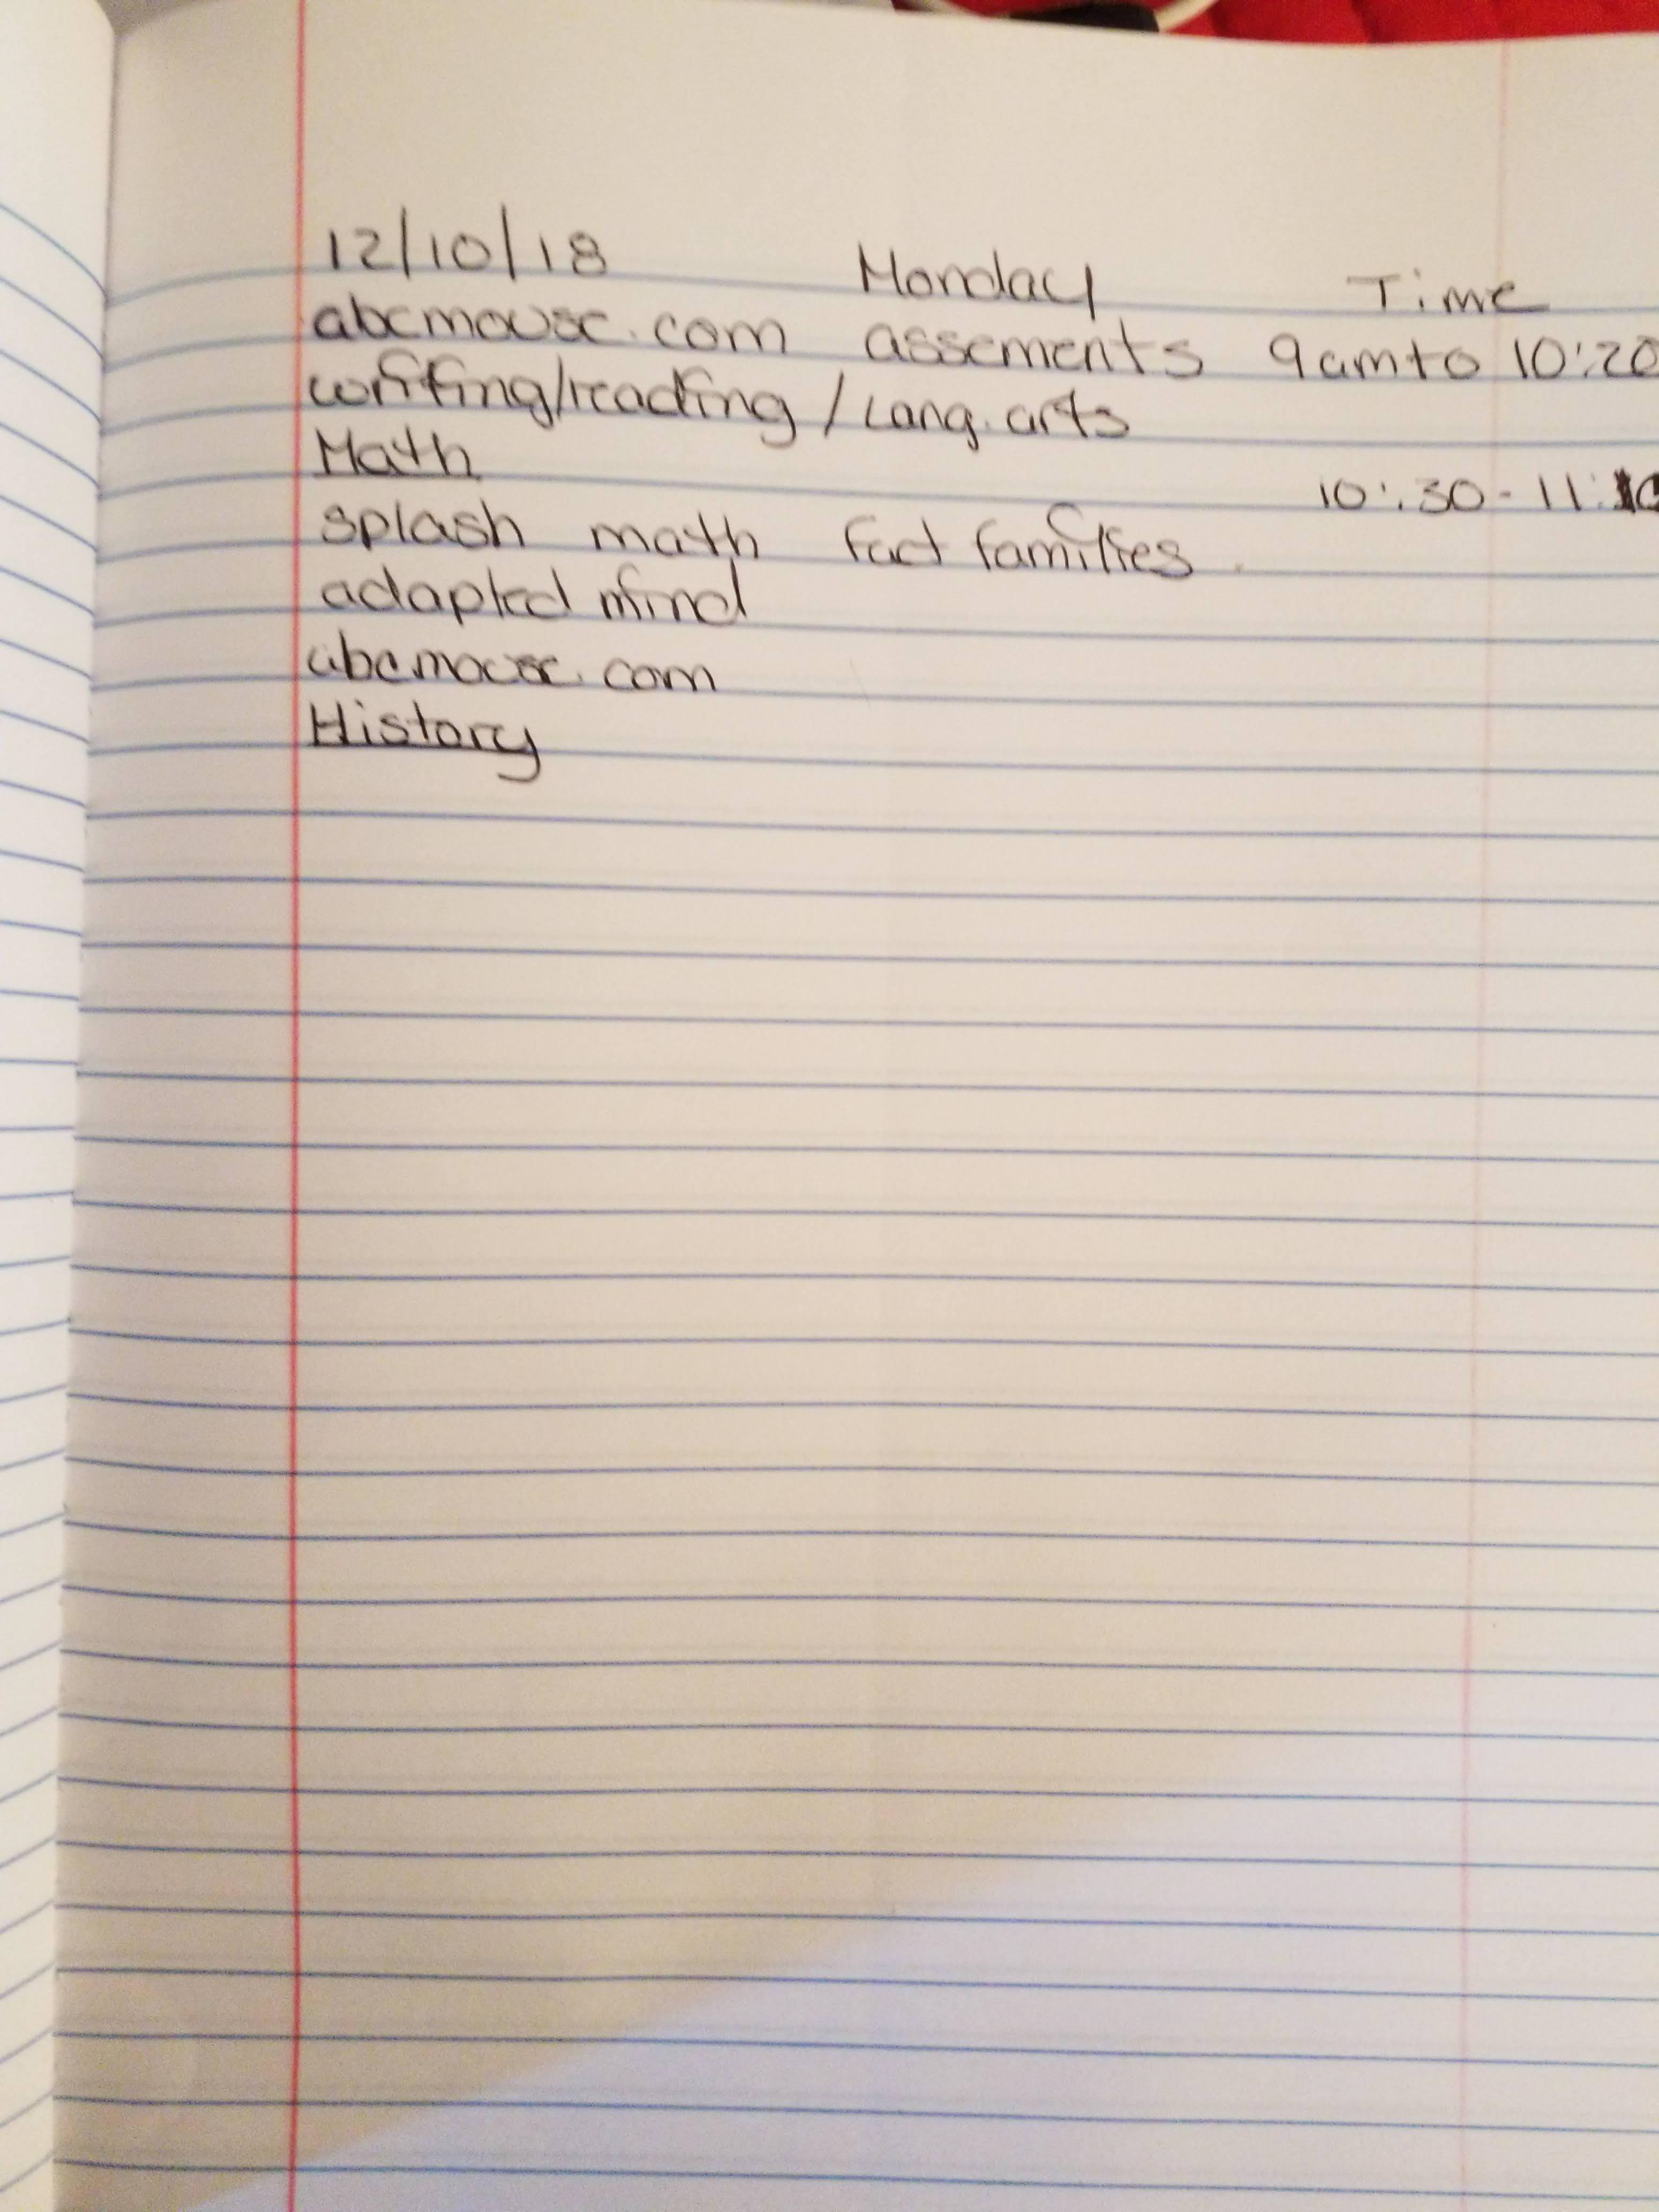 12/10/18 Monday Time
abcmouse.com assements 9am to 10:20
writing/reading / Lang. arts
Math 10:30 - 11:10
splash math fact families
adapted mind
abcmouse.com
History